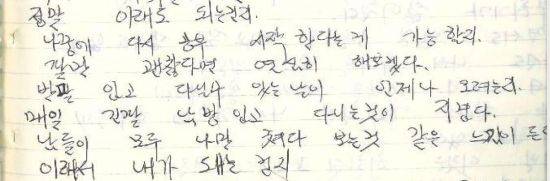 정말 이래도 되는건지.
나중에 다시 공부 시작 한다는게 가능할지.
괜찮다면 열심히 해보겠다.
반팔 입고 다닐 수 있는 날이 언제나 오려는지.
매일 긴팔 입고 다니는것이 지겹다.
남들이 모두 나만 쳐다 보는것 같은 느낌이 든
이래서 내가 되는 건지